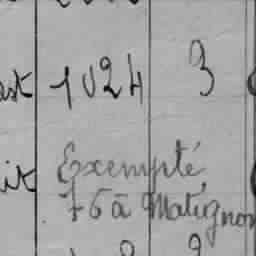 1024 3
Exempté
76 à Matignon